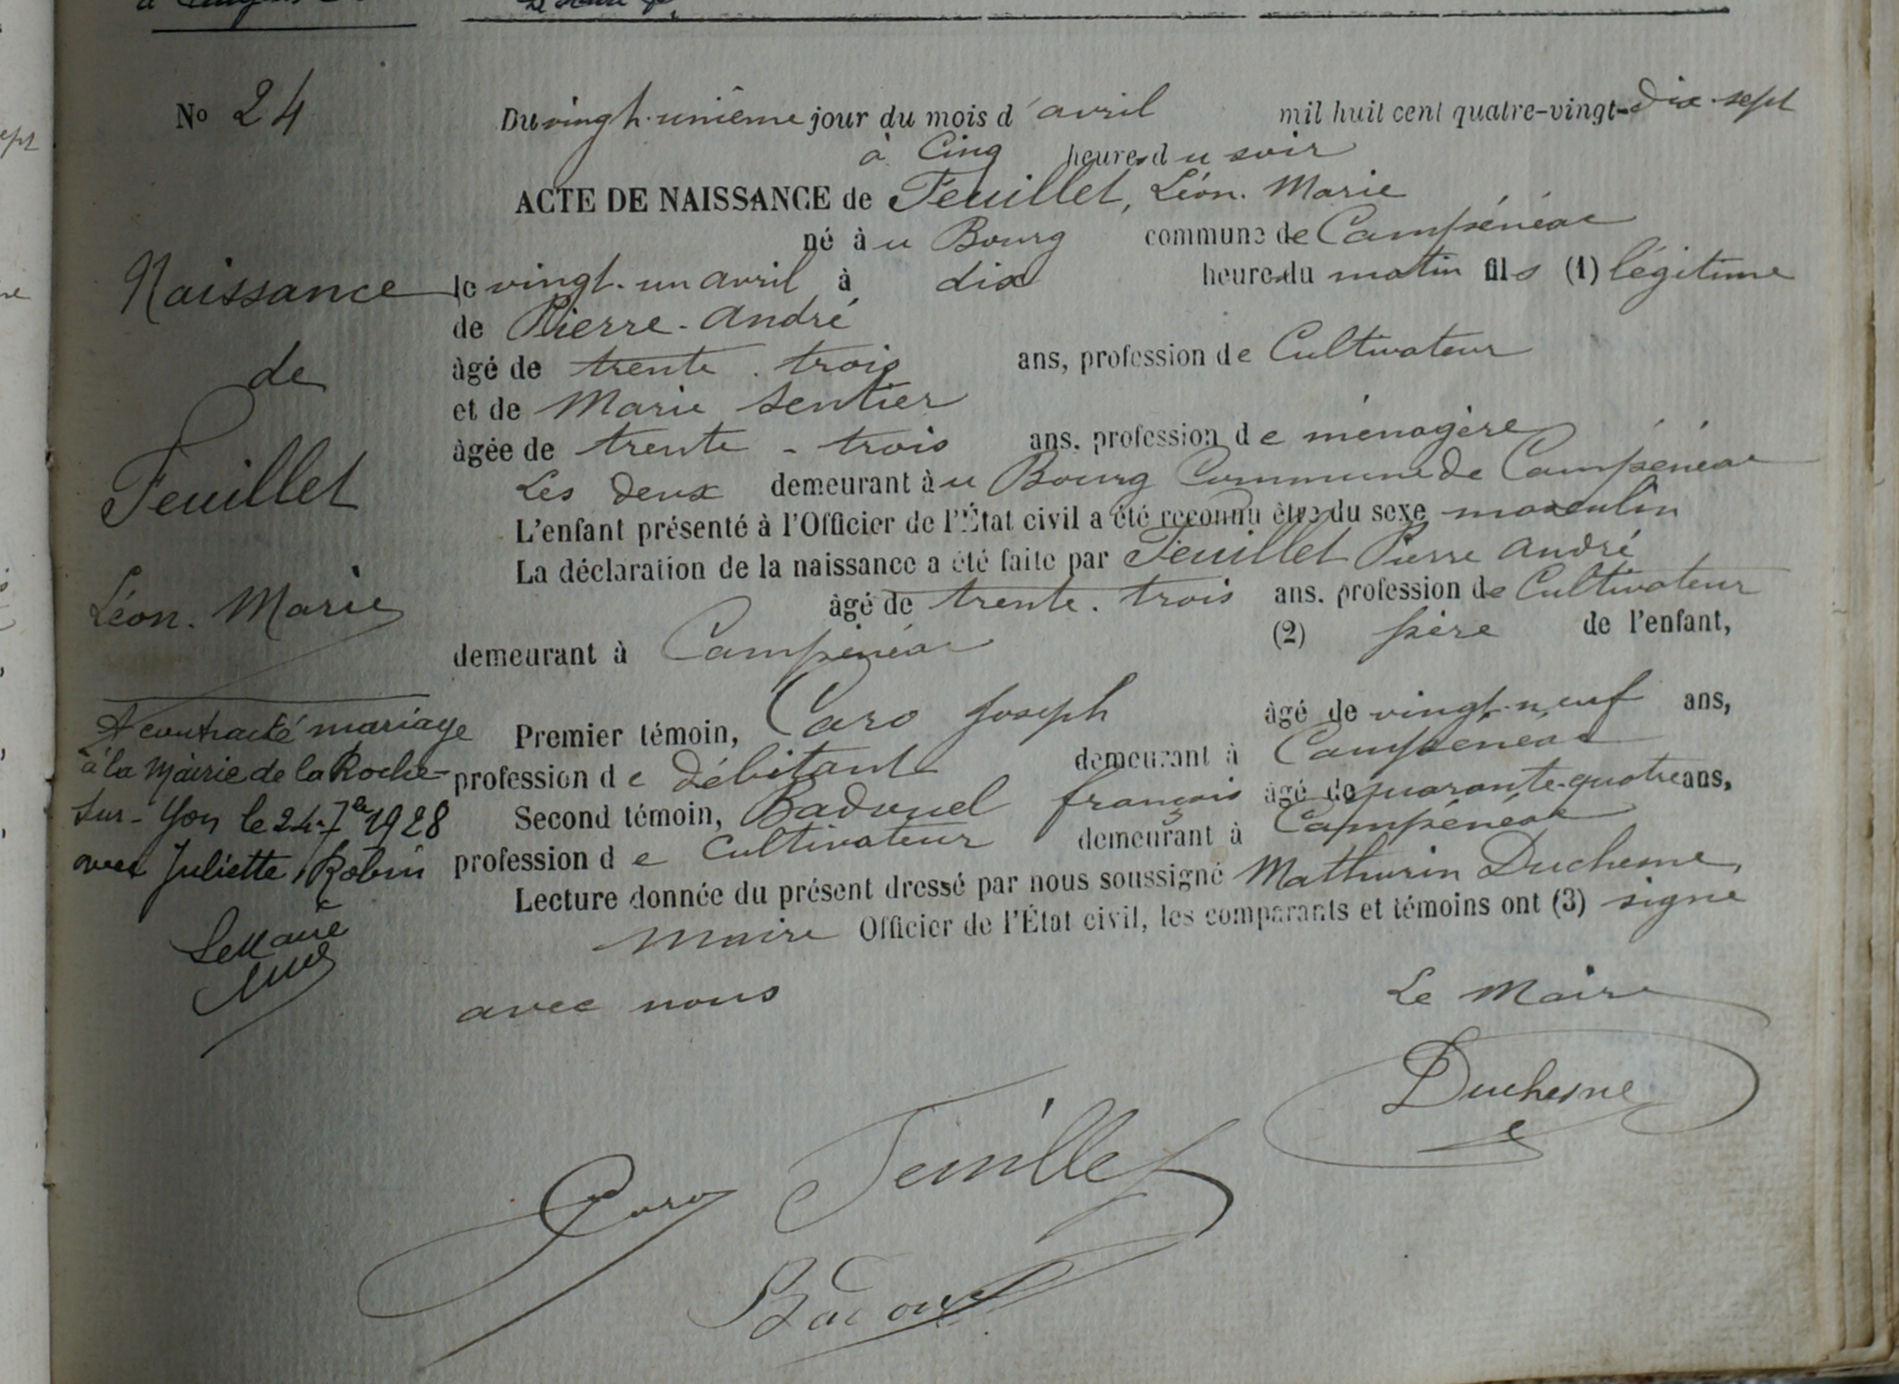 No 24
Du vingt-unième jour du mois d'avril mil huit cent quatre-vingt-dix-sept
à Cinq heures du soir
ACTE DE NAISSANCE de Feuillet, Léon. Marie
né à u Bourg commune de Campénéac
le vingt-un avril à dix heures du matin fils (1) légitime
de Pierre-André
âgé de trente-trois ans, profession de Cultivateur
et de Marie Sentier
âgée de trente-trois ans, profession de ménagère
Les deux demeurant à u Bourg Commune de Campénéac
L'enfant présenté à l'Officier de l'État civil a été reconnu être du sexe masculin
La déclaration de la naissance a été faite par Feuillet Pierre André
âgé de trente-trois ans, profession de Cultivateur
demeurant à Campénéac (2) père de l'enfant,
Premier témoin, Caro Joseph âgé de vingt-neuf ans,
profession de débitant demeurant à Campénéac
Second témoin, Badouel françois âgé de quarante-quatre ans,
profession de Cultivateur demeurant à Campénéac
Lecture donnée du présent dressé par nous soussigné Mathurin Duchesne,
Maire Officier de l'État civil, les comparants et témoins ont (3) signé
avec nous
Le Maire
Duchesne
Feuillet
Caro
Badouel
Naissance
de
Feuillet
Léon. Marie
A contracté mariage
à la Mairie de la Roche-
sur-Yon le 24 7bre 1928
avec Juliette Robin
Le Maire